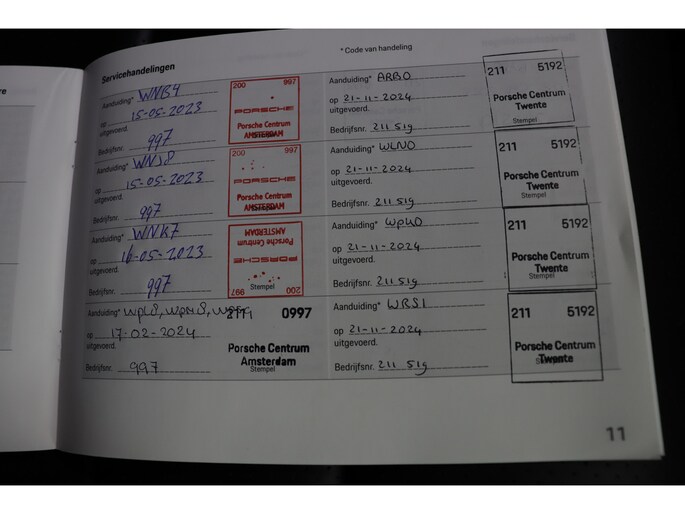 * Code van handeling
Servicehandelingen
Aanduiding* WNB4
op 15-05-2023
uitgevoerd.
Bedrijfsnr. 997
200 997
PORSCHE
Porsche Centrum
AMSTERDAM
Stempel
Aanduiding* WNJ8
op 15-05-2023
uitgevoerd.
Bedrijfsnr. 997
200 997
PORSCHE
Porsche Centrum
AMSTERDAM
Stempel
Aanduiding* WNK7
op 16-05-2023
uitgevoerd.
Bedrijfsnr. 997
200 997
PORSCHE
Porsche Centrum
AMSTERDAM
Stempel
Aanduiding* WPL8, WPM8,
op 17-02-2024
uitgevoerd.
Bedrijfsnr. 997
211 0997
Porsche Centrum
Amsterdam
Stempel
Aanduiding* ARB0
op 21-11-2024
uitgevoerd.
Bedrijfsnr. 211 519
211 5192
Porsche Centrum
Twente
Stempel
Aanduiding* WLN0
op 21-11-2024
uitgevoerd.
Bedrijfsnr. 211 519
211 5192
Porsche Centrum
Twente
Stempel
Aanduiding*
op 21-11-2024
uitgevoerd.
Bedrijfsnr. 211 519
211 5192
Porsche Centrum
Twente
Aanduiding* WRS1
op 21-11-2024
uitgevoerd.
Bedrijfsnr. 211 519
211 5192
Porsche Centrum
Twente
11